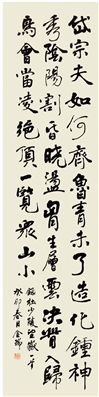 岱宗夫如何齊魯青未了造化鍾神
秀陰陽割昏曉盪胷生層雲決眥入歸
鳥會當凌絕頂一覽眾山小
錄杜少陵望嶽一首
癸卯春月金